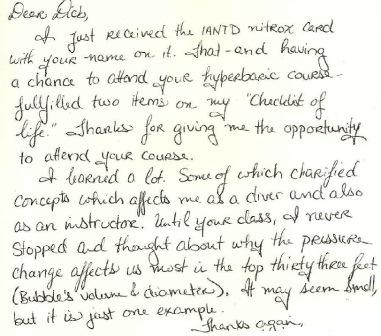 Dear Dick,
I just received the IANTD nitrox card
with your name on it. That - and having
a chance to attend your hyperbaric course -
fullfilled two items on my "Checklist of
life." Thanks for giving me the opportunity
to attend your course.
I learned a lot. Some of which charified
concepts which affects me as a diver and also
as an instructor. Until your class, I never
stopped and thought about why the pressure
change affects us most in the top thirty three feet
(Bubble's volume & diameter). It may seem small,
but it is just one example.
Thanks again,